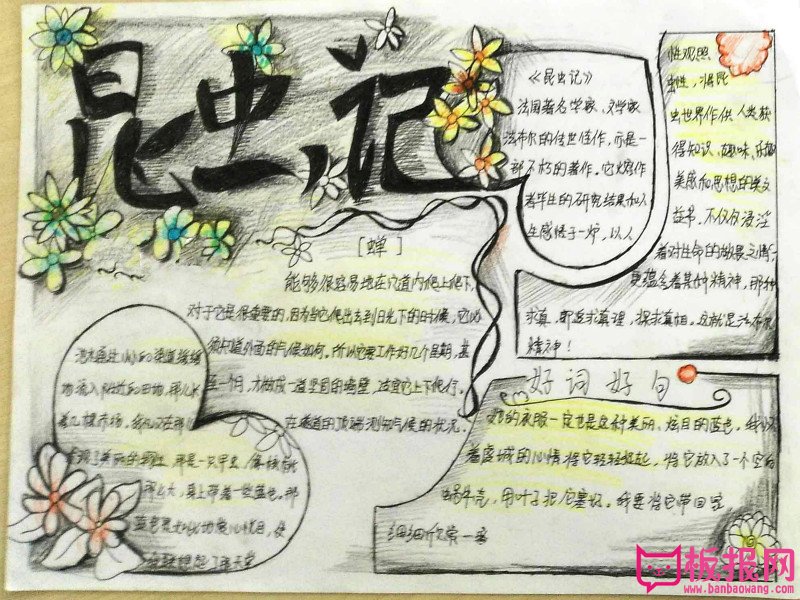 昆虫记
《昆虫记》
法国著名学家、文学家
法布尔的传世佳作，而是一
部不朽的著作。它熔作
者毕生的研究结果和人
生感悟于一炉，以人
性观照
虫性，将昆
虫世界作供人类获
得知识、趣味、
美感和思想的美文
在书，不仅仅浸淫
着对生命的敬畏之情，
更蕴含着某种精神，那种
求真，即追求真理，探求真相。这就是法布尔
精神！
［蝉］
能够很容易地在穴道内爬上爬下，
对于它是很重要的，因为当它爬出去到日光下的时候，它必
须知道外面的气候如何。所以它要工作好几个星期，甚
至一个月，才做成一道坚固的墙壁，适宜它上下爬行。
在隧道的顶端测知气候的状况。
流入附近的田功，那儿长
那是一只甲虫，
那么大，身上带着一些蓝色。那
好词好句
她的衣服一定也是这种美丽、炫目的蓝色，我怀
着虔诚的心情将它轻轻捉起，将它放入了一个空白
蜗牛壳，用叶子把它塞好。我要将它带回家
细细欣赏一番
板报网
www.banbaowang.com